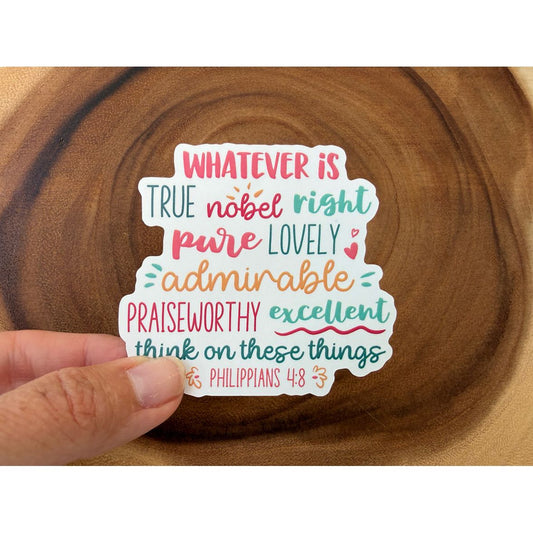 WHATEVER is
TRUE nobel right
pure LOVELY
admirable
PRAISEWORTHY excellent
think on these things
PHILIPPIANS 4:8